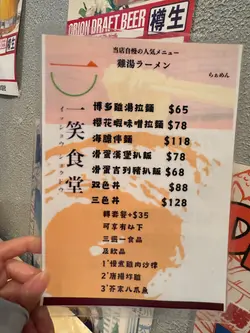 ORION DRAFT BEER 樽生
当店自慢の人気メニュー
雞湯ラーメン
らぁめん
一笑食堂
イッショウショクドウ
博多雞湯拉麵 $65
櫻花蝦味噌拉麵 $78
海膽伴麵 $118
滑蛋漢堡扒飯 $78
滑蛋吉列豬扒飯 $68
双色丼 $88
三色丼 $128
轉套餐+$35
可享有以下
三選一食品
及飲品
1'慢煮雞肉沙律
2'唐揚炸雞
3'芥末八爪魚